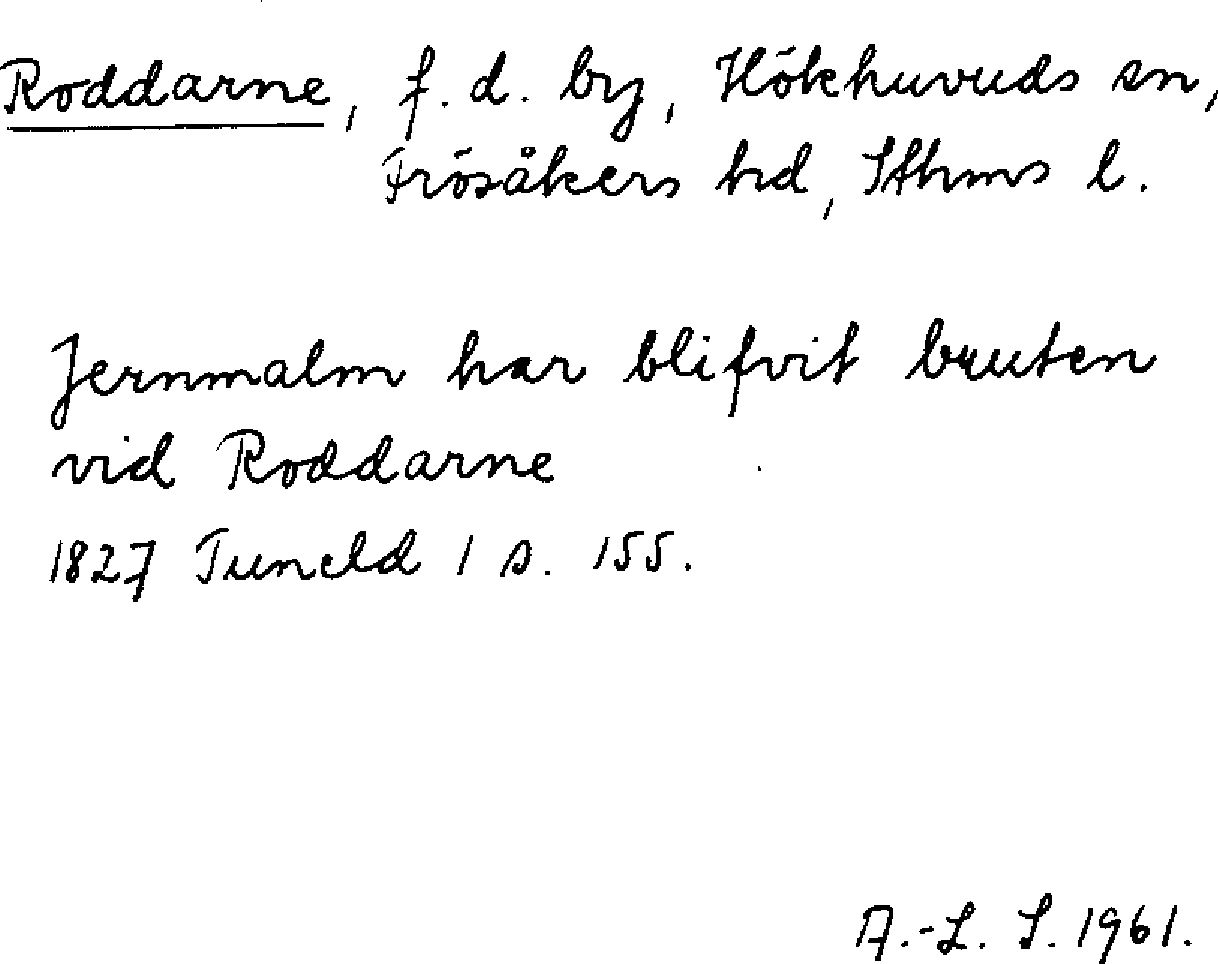 Roddarne, f. d. by, Hökhuvuds sn,
Frösåkers hd, Sthms l.
Jernmalm har blifvit bruten
vid Roddarne
1827 Tuneld 1 s. 155.
A.-L. S. 1961.